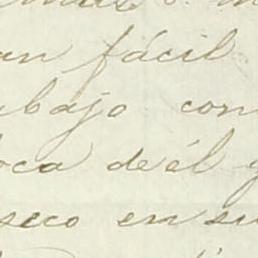 an fácil
bajo con
oca de él
seco en su